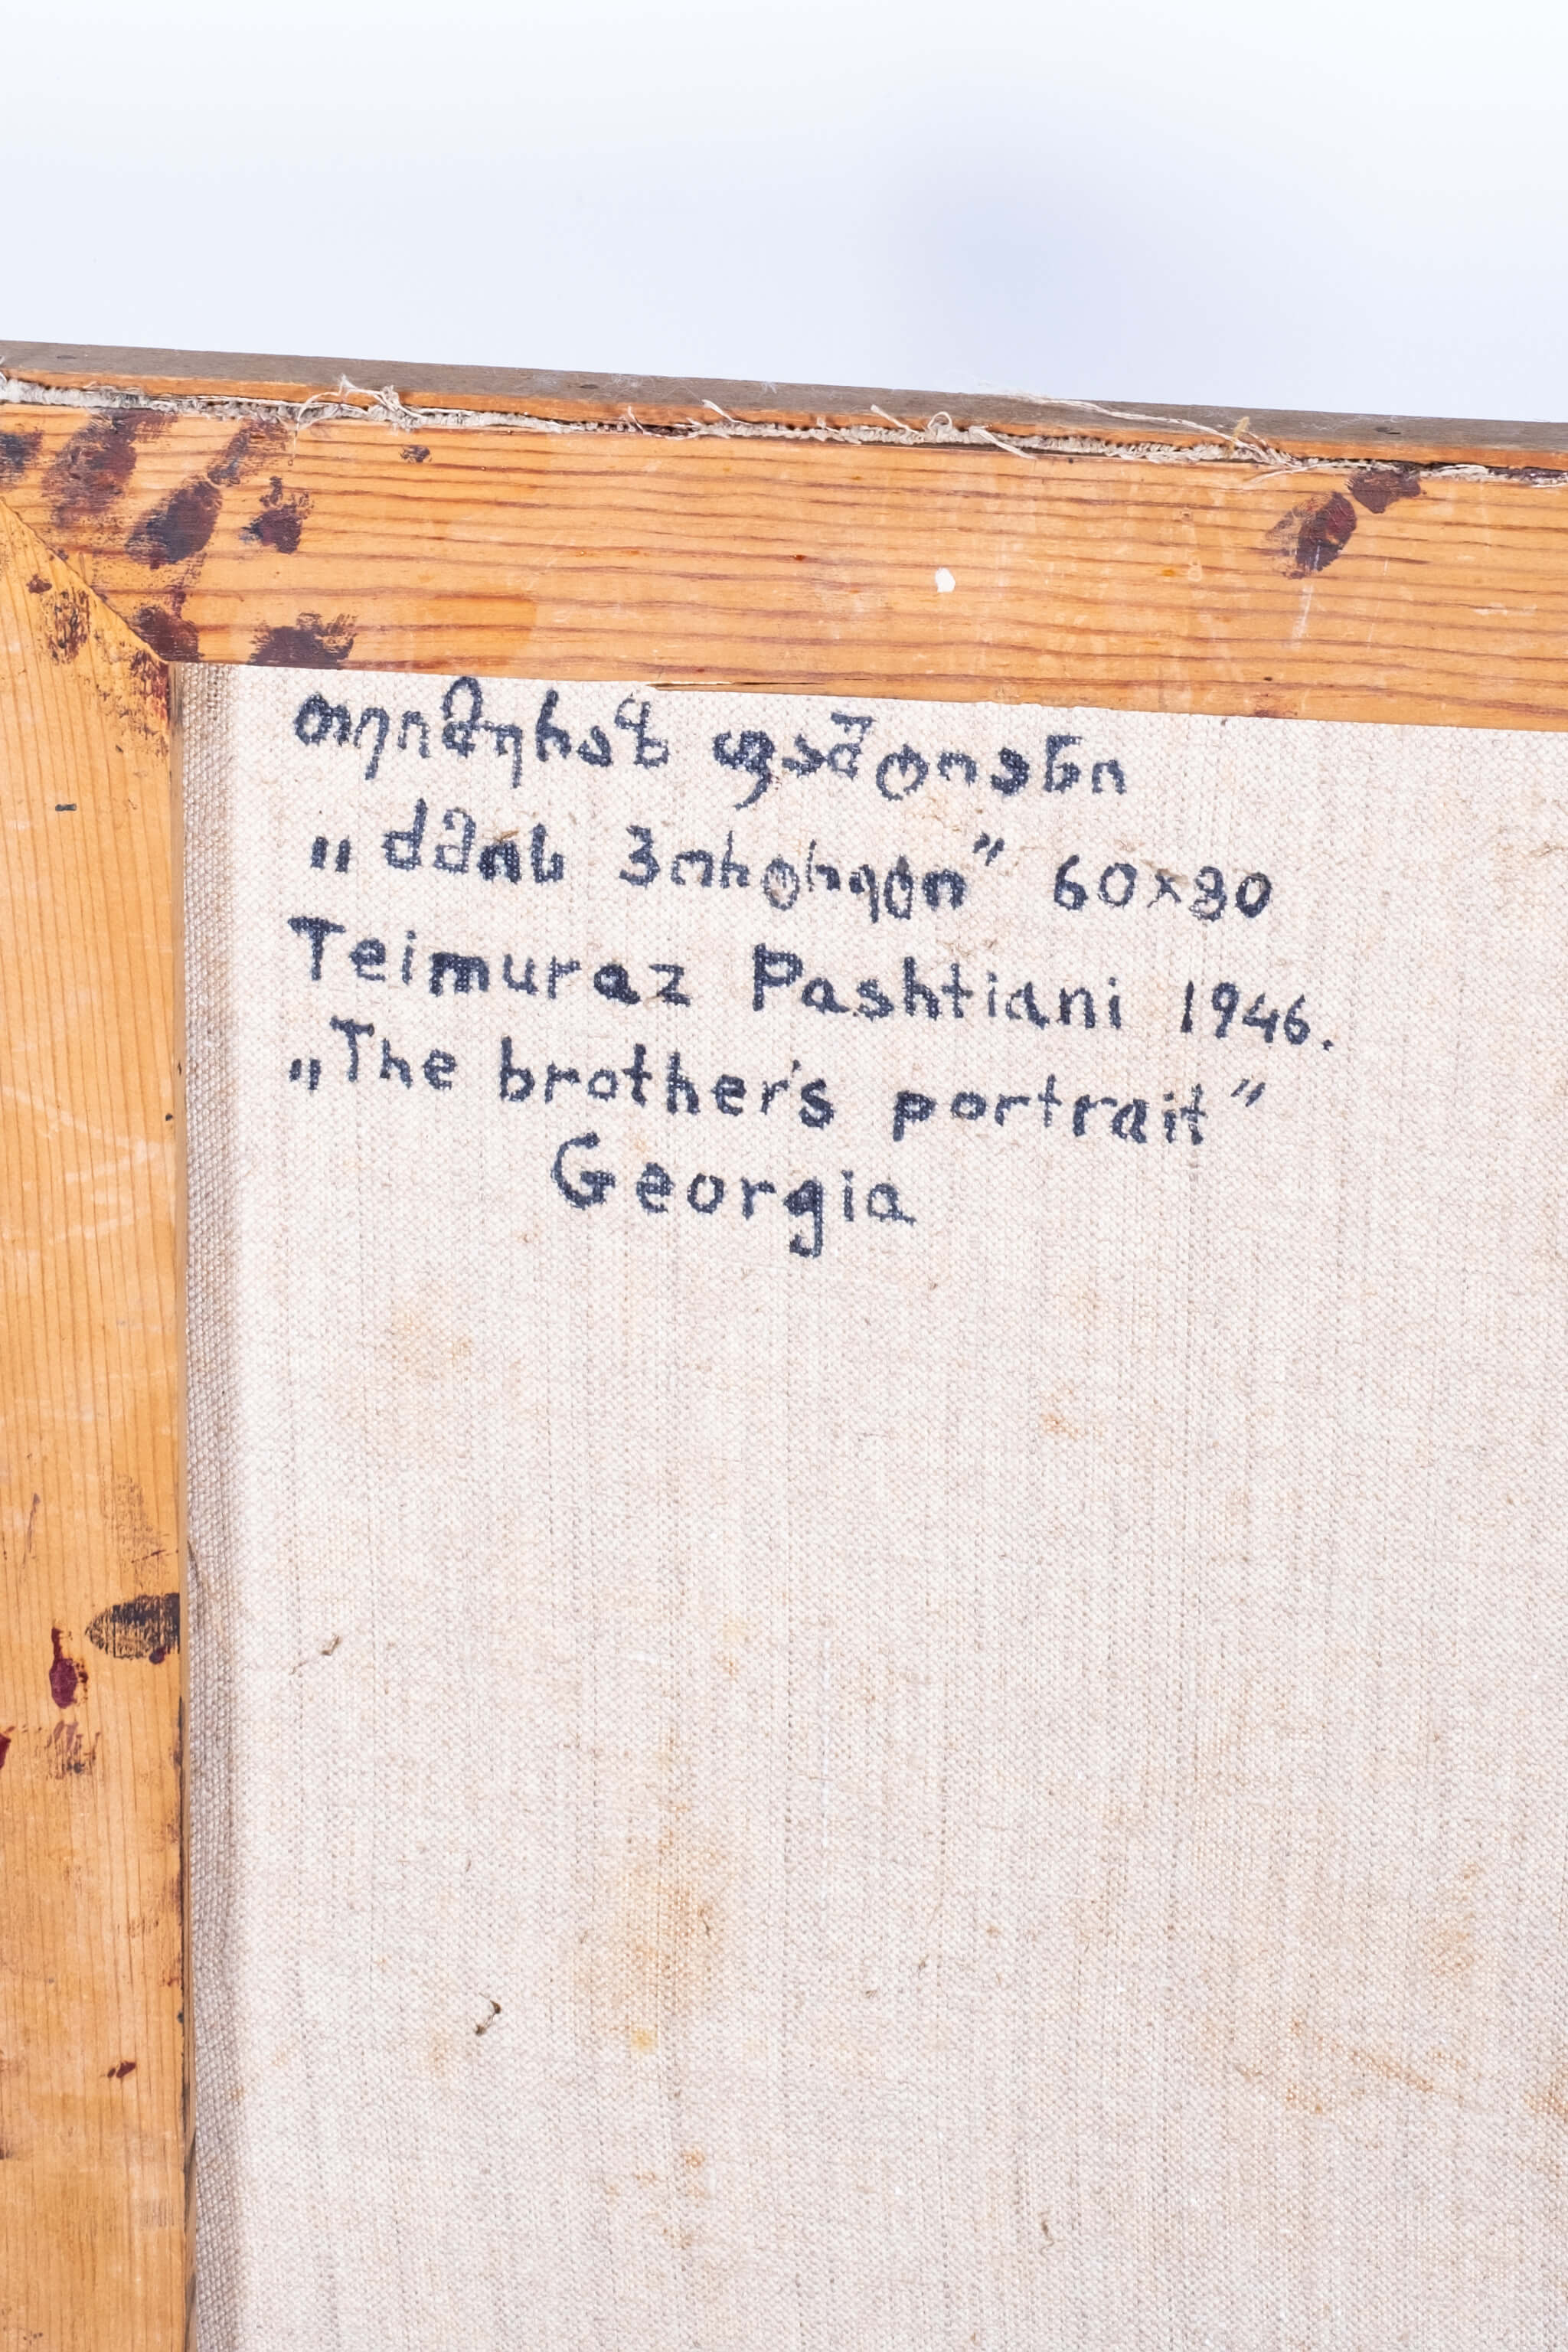 თეიმურაზ ფაშტიანი
„ძმის პორტრეტი” 60x80
Teimuraz Pashtiani 1946.
„The brother's portrait”
Georgia